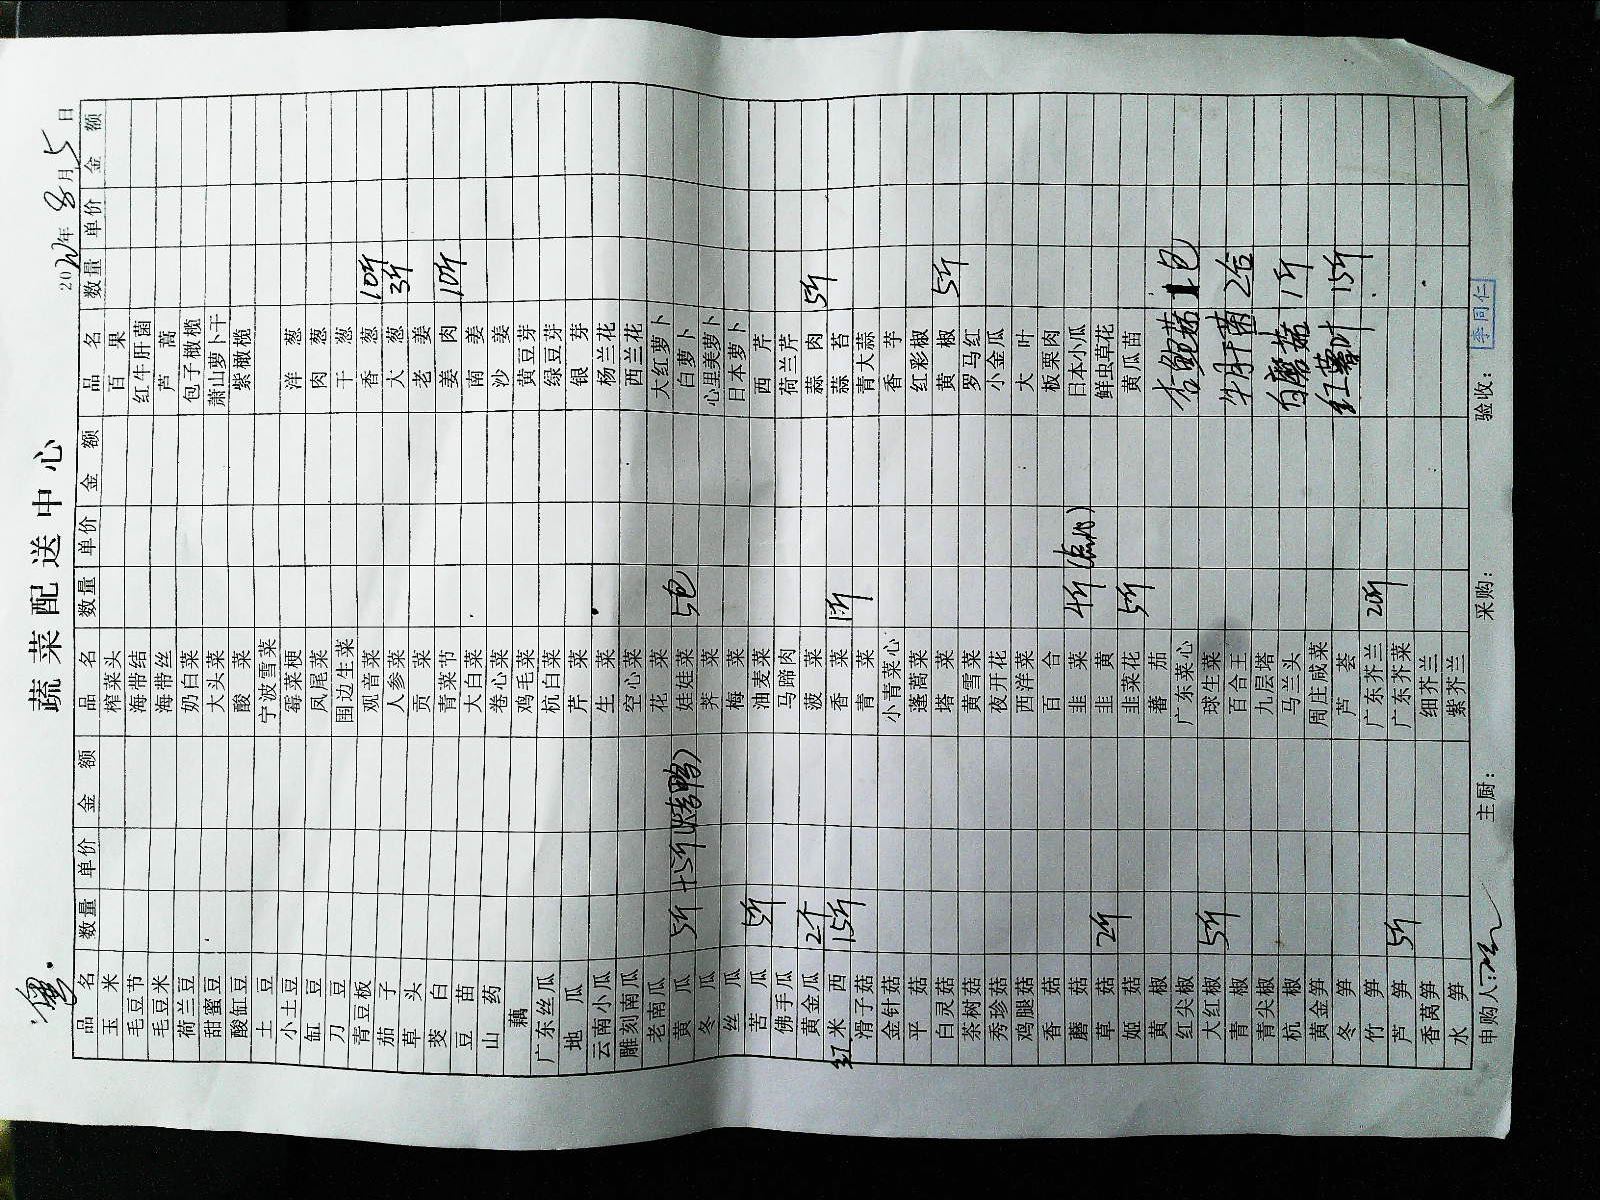 蔬菜配送中心
2022年8月5日
品名 数量 单价 金额 品名 数量 单价 金额 品名 数量 单价 金额
玉米 榨菜头 百果
毛豆节 海带结 红牛肝菌
毛豆米 海带丝 芦蒿
荷兰豆 奶白菜 包子橄榄
甜蜜豆 大头菜 萧山萝卜干
酸缸豆 酸菜 紫橄榄
土豆 宁波雪菜
小土豆 莓菜梗 洋葱
缸豆 凤尾菜 肉葱
刀豆 围边生菜 干葱
青豆板 观音菜 香葱 10斤
茄子 人参菜 大葱 3斤
草头 贡菜 老姜
茭白 青菜节 姜肉 10斤
豆苗 大白菜 南姜
山药 卷心菜 沙姜
藕 鸡毛菜 黄豆芽
广东丝瓜 杭白菜 绿豆芽
地瓜 芹菜 银芽
云南小瓜 生菜 杨兰花
雕刻南瓜 空心菜 西兰花
老南瓜 花菜 大红萝卜
黄瓜 5斤+5斤(烤鸭) 娃娃菜 5包 白萝卜
冬瓜 荠菜 心里美萝卜
丝瓜 梅菜 日本萝卜
苦瓜 5斤 油麦菜 西芹
佛手瓜 马蹄肉 荷兰芹
黄金瓜 2个 菠菜 蒜肉 5斤
红米西 15斤 香菜 1斤 蒜苔
滑子菇 青菜 青大蒜
金针菇 小青菜心 香芋
平菇 蓬蒿菜 红彩椒
白灵菇 塔菜 黄椒 5斤
茶树菇 黄雪菜 罗马红
秀珍菇 夜开花 小金瓜
鸡腿菇 西洋菜 大叶
香菇 百合 板栗肉
蘑菇 韭菜 4斤(点心) 日本小瓜
草菇 2斤 韭黄 鲜虫草花
姬菇 韭菜花 5斤 黄瓜苗
黄椒 蕃茄
红尖椒 广东菜心 杏鲍菇 1包
大红椒 5斤 球生菜
青椒 百合王 牛肝菌 2合
青尖椒 九层塔
杭椒 马兰头 白磨菇 1斤
黄金笋 周庄咸菜
冬笋 芦荟 红薯叶 15斤
竹笋 广东芥兰 20斤
芦笋 5斤 广东芥菜
香莴笋 细芥兰
水笋 紫芥兰
申购人: 主厨: 采购: 验收: 李同仁